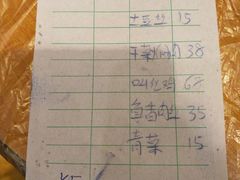 土豆丝 15
干菜 肉 38
叫化鸡 68
鱼香肉丝 35
青菜 15